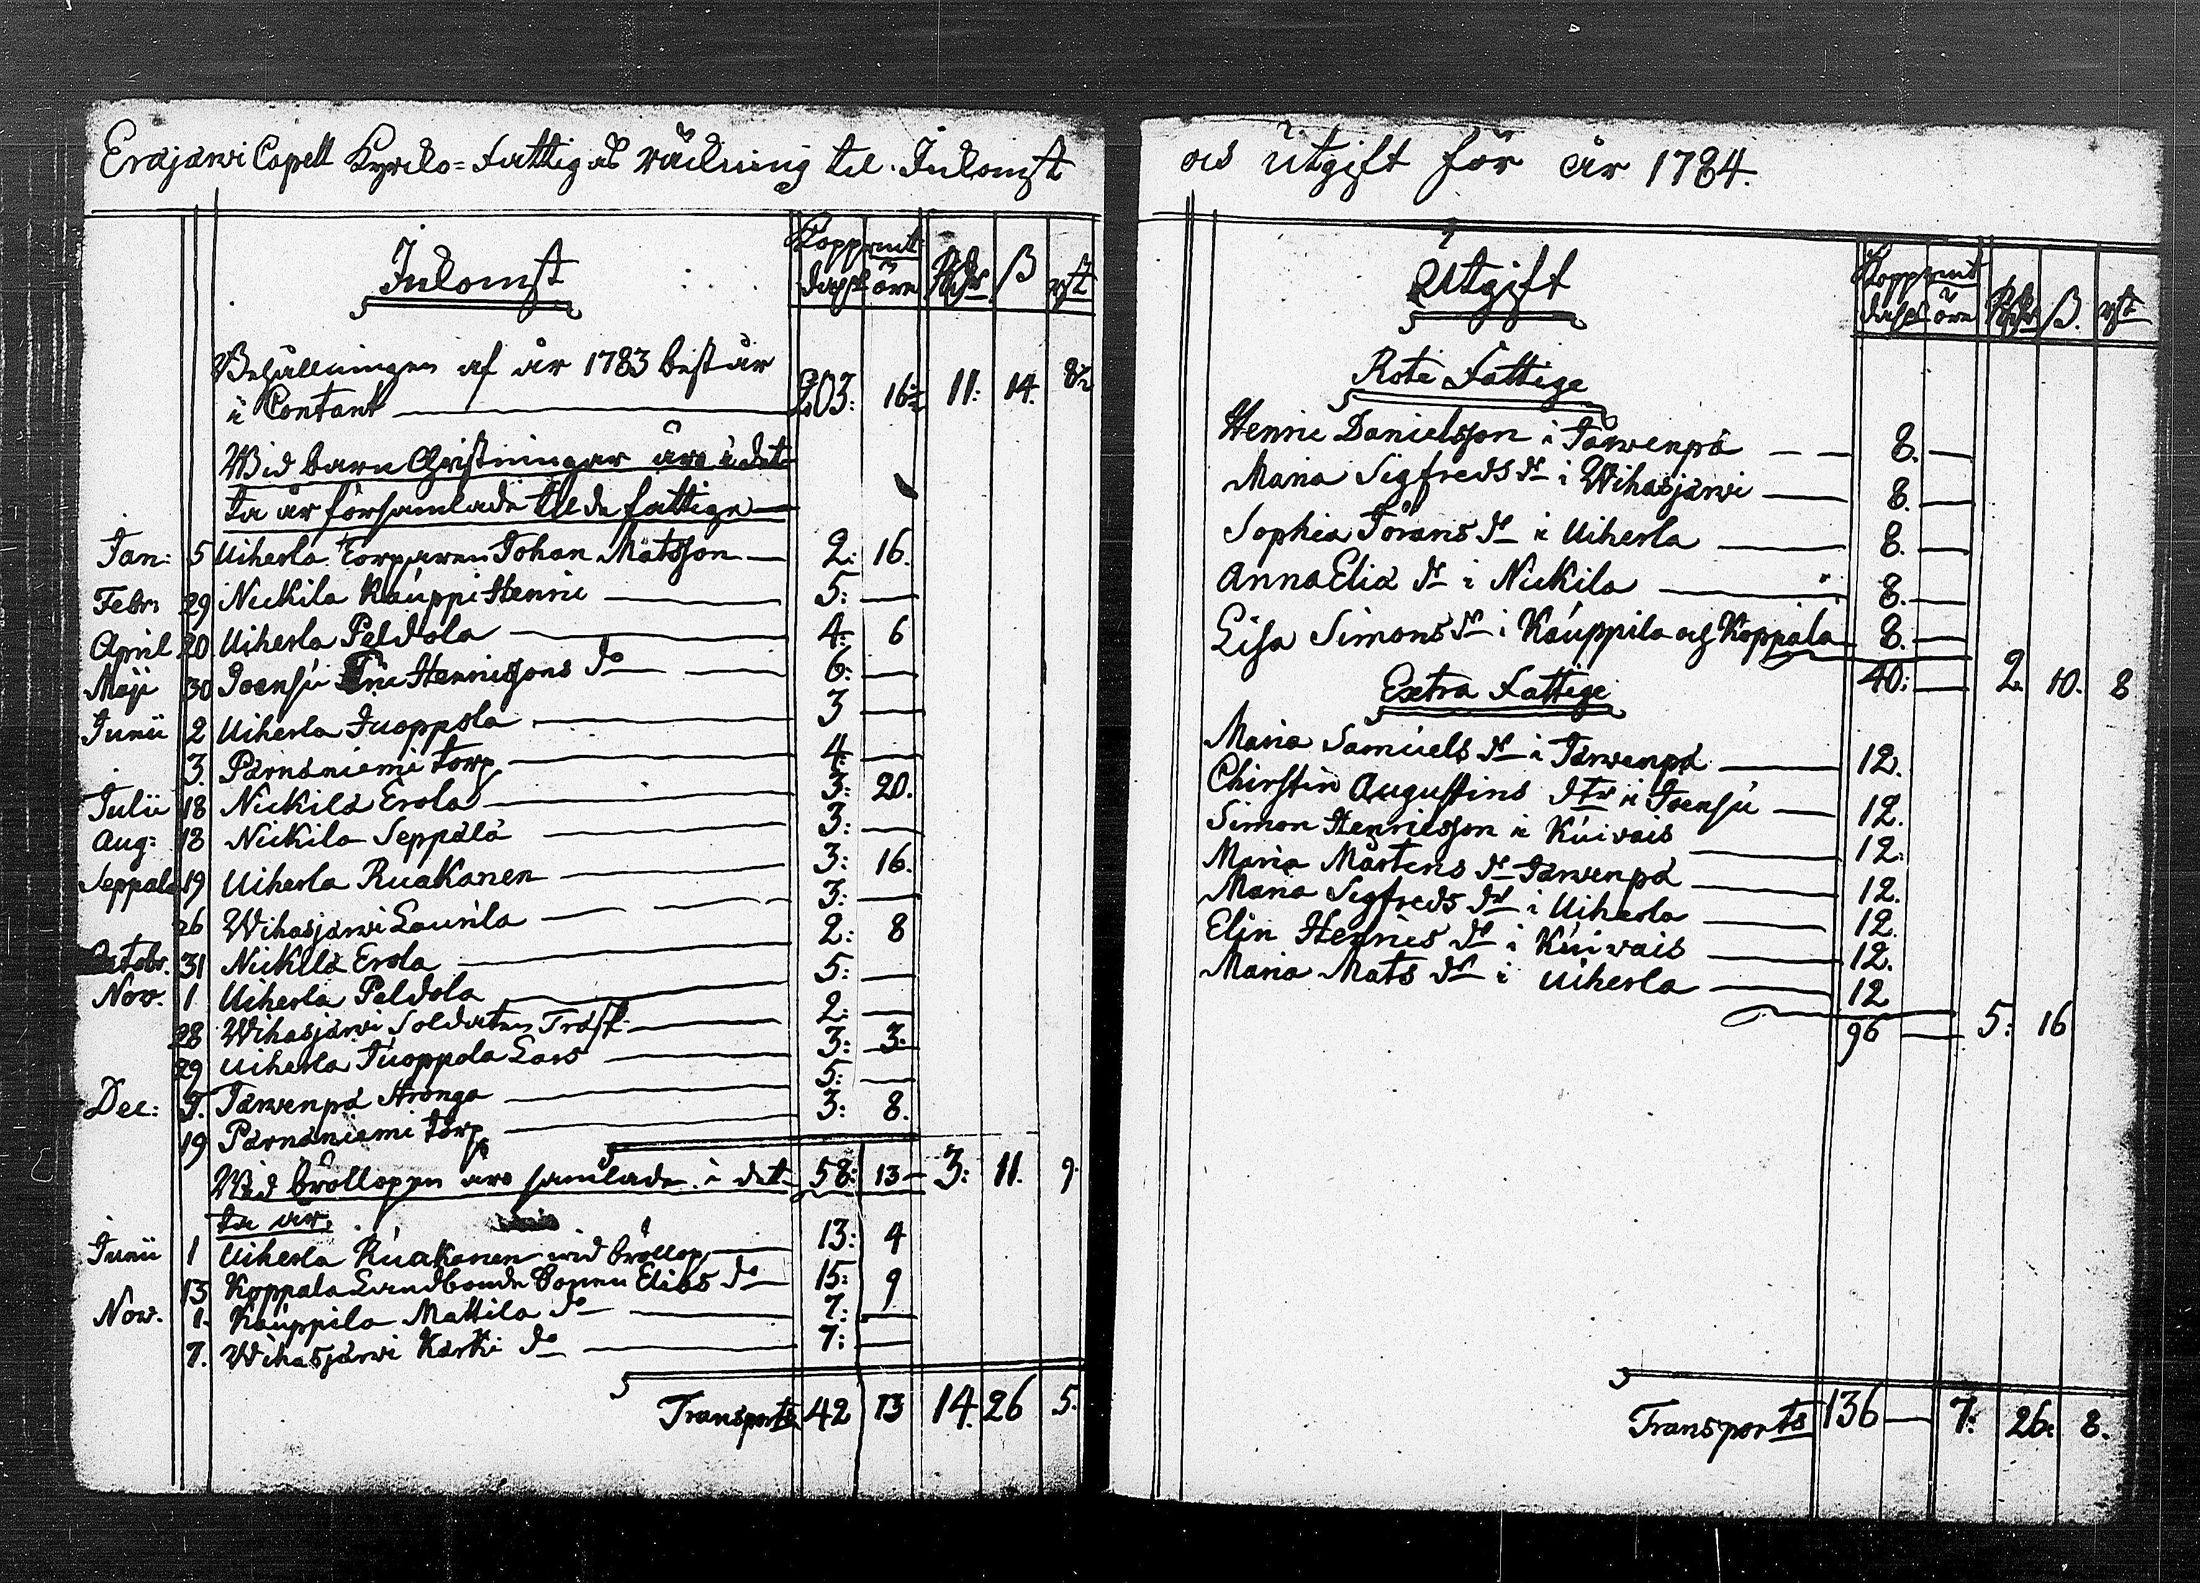 Eräjärwi Capell Kyrcko=Fattigas räckning til Inkomst
Inkomst
Koppmt
dahl öre Rdr ß rst
Behållningen af år 1783 består
i Contant 203: 16 11: 14.
Wid barn Christningar äro i det
ta år församlade til de fattige
Jan: 5 Uiherla Torparen Johan Matsson 2: 16.
Febr 29 Nickila Kauppi Henric 5: —
April 20 Uiherla Peldola 4: 6
Maji 30 Joensu Henricssons do 6: —
Junii 2 Uiherla Juoppola 3 —
3. Pärnäniemi torp 4: —
Julii 18 Nickilä Erola 3: 20.
Aug: 18 Nickilä Seppälä 3: —
19 Uiherla Ruakanen 3: 16.
26 Wihasjärwi Laurila 3: —
Octobr. 31 Nickilä Erola 2: 8
Nov. 1 Uiherla Peldola 5: —
28 Wihasjärwi Soldaten Träsk 2: —
29 Uiherla Juoppola Lars 3: 3.
Dec: 5. Järwenpä Aronga 5: —
19 Pärnäniemi torp 3: 8.
58: 13 3: 11. 9.
Wid bröllopen äro samlade i det
ta år.
Junii 1 Uiherla Ruakanen wid bröllop 13: 4
13 Koppala Landbonde Sonen Elias do 15: 9
Nov. 1. Kauppila Mattila do 7: —
7. Wihasjärwi Kärki do 7: —
Transports 42 13 14. 26 5.
och Utgift för år 1784.
Utgift
Koppmt
dahl öre Rdr ß. rst
Rote Fattige
Henric Danielsson i Järwenpä 8. —
Maria Sigfreds dr i Wihasjärwi 8. —
Sophia Jörans dr i Uiherla 8. —
Anna Eliä dr i Nickila 8. —
Lisa Simons dr i Kauppila och Koppala 8. —
40: — 2. 10. 8
Extra Fattige
Maria Samuels dr i Järwenpä 12.
Chirstin Augustins dtr i Joensu 12.
Simon Henricsson i Kuivais 12.
Maria Mårtens dr Järwenpä 12.
Maria Sigfreds dr i Uiherla 12.
Elin Henrics dr i Kuivais 12.
Maria Mats dr i Uiherla 12
96 — 5: 16
Transports 136 — 7. 26. 8.